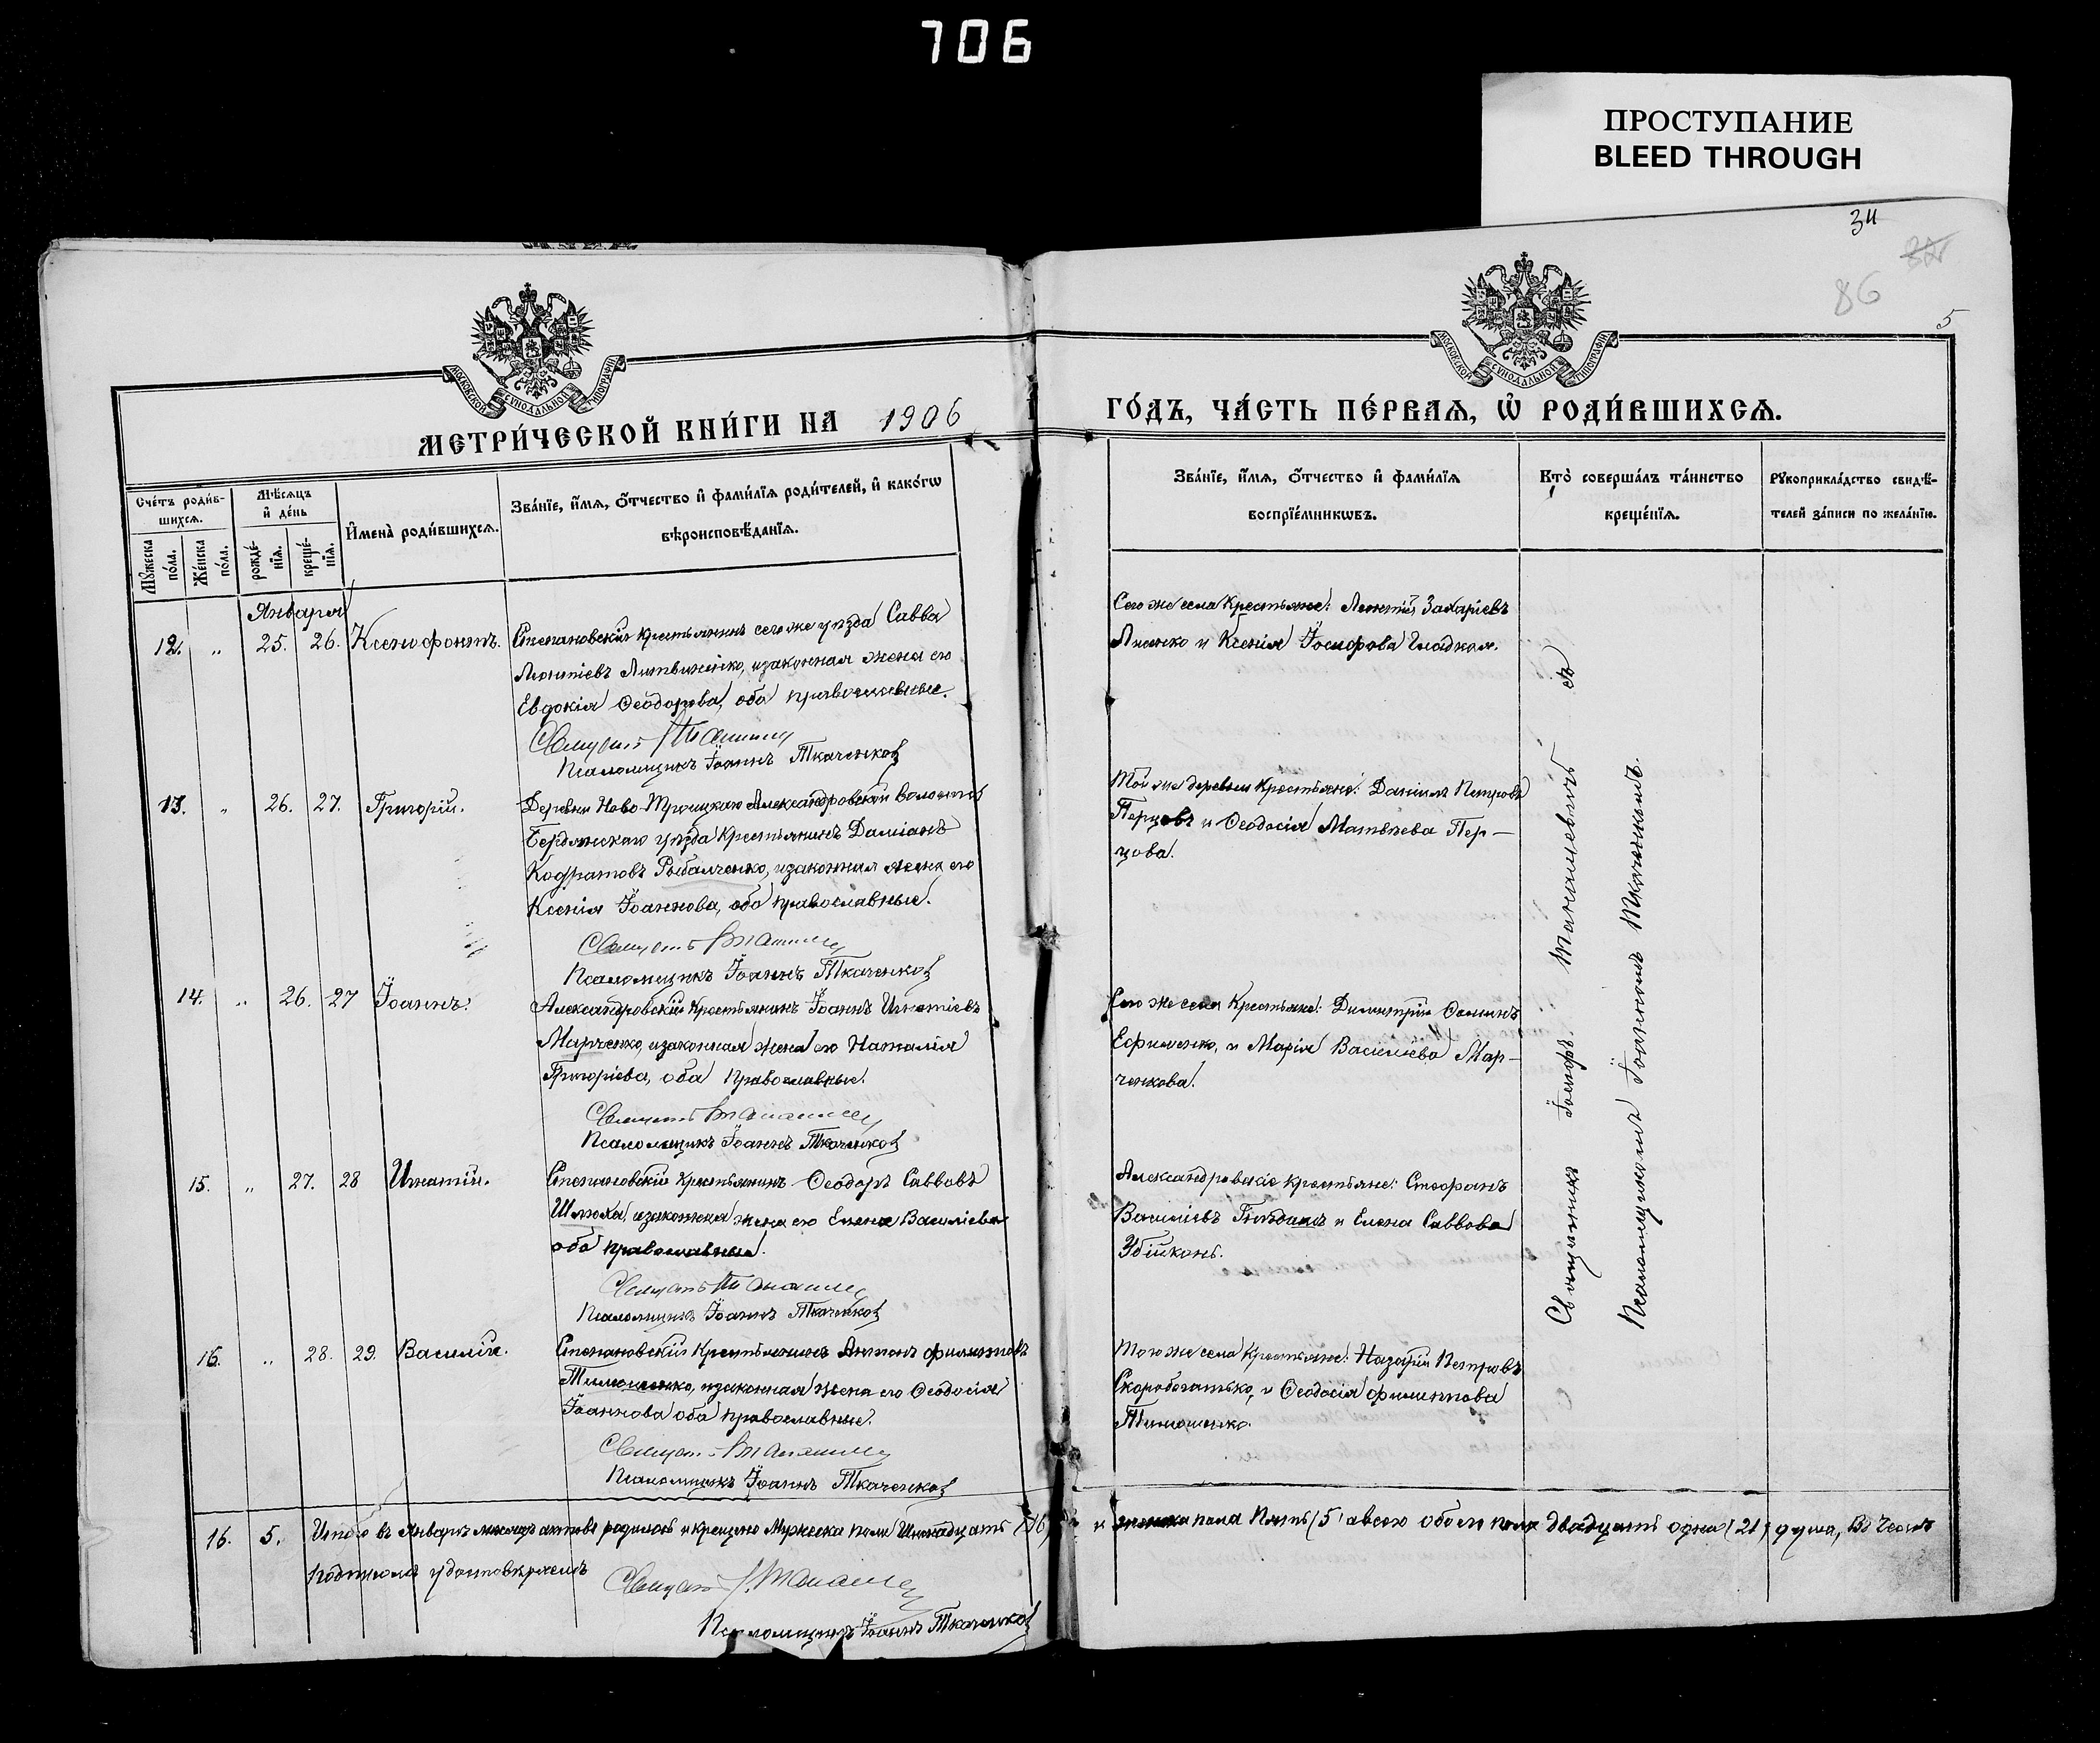 706
ПРОСТУПАНИЕ
BLEED THROUGH
34
86
5
МОСКОВСКОЙ СѴНОДАЛЬНОЙ ТИПОГРАФІИ
МОСКОВСКОЙ СѴНОДАЛЬНОЙ ТИПОГРАФІИ
МЕТРИ́ЧЕСКОЙ КНИ́ГИ НА 1906
ГО́ДЪ, ЧА́СТЬ ПЕ́РВАѦ, Ѡ҆ РОДИ́ВШИХСѦ.
Сче́тъ роди́в-
шихсѧ.
Мꙋ́жеска по́ла.
Же́нска по́ла.
Мѣ́сѧцъ
и҆ де́нь
рожде́-
нїѧ.
креще́-
нїѧ.
И҆мена̀ роди́вшихсѧ.
Зва́нїе, и҆́мѧ, ѻ҆́тчество и҆ фами́лїѧ роди́телей, и҆ како́гѡ
вѣроисповѣ́данїѧ.
Зва́нїе, и҆́мѧ, ѻ҆́тчество и҆ фами́лїѧ
воспрїе́мникѡвъ.
Кто̀ соверша́лъ та́инство
креще́нїѧ.
Рꙋкоприкла́дство свидѣ́-
телей за́писи по жела́нїю.
Января
12. „ 25. 26. Ксенофонтъ.
Степановскій крестьянинъ сего же уѣзда Савва
Леонтіевъ Литвиненко, изаконная жена его
Евдокія Ѳеодорова, оба православные.
Псаломщикъ Іоаннъ Ткаченко
Сего же села крестьяне: Леонтій Захаріевъ
Лисенко и Ксенія Іосифова Гладкая.
13. „ 26. 27. Григорій.
Деревни Ново-Троицкаго Александровской волости
Бердянскаго уѣзда крестьянинъ Даміанъ
Кодратовъ Рыбалченко, изаконная жена его
Ксенія Іоаннова, оба православные.
Псаломщикъ Іоаннъ Ткаченко
Той же деревни крестьяне: Даніилъ Петровъ
Перцовъ и Ѳеодосія Матвѣева Пер-
цова.
14. „ 26. 27 Іоаннъ.
Александровскій крестьянинъ Іоаннъ Игнатіевъ
Марченко, изаконная жена его Наталія
Григоріева, оба православные.
Псаломщикъ Іоаннъ Ткаченко
Сего же села крестьяне: Димитрій Ѳоминъ
Ефименко, и Марія Василіева Мар-
ченкова.
15. „ 27. 28 Игнатій.
Степановскій крестьянинъ Ѳеодоръ Саввовъ
Шлюха, изаконная жена его Елена Василіева
оба православные.
Псаломщикъ Іоаннъ Ткаченко
Александровскіе крестьяне: Стефанъ
Василіевъ и Елена Саввова
Убійконь.
16. „ 28. 29. Василій.
Степановскій крестьянинъ Антонъ Филиповъ
Тимошенко, изаконная жена его Ѳеодосія
Іоаннова оба православные.
Псаломщикъ Іоаннъ Ткаченко
Того же села крестьяне: Назарій Петровъ
Скоробогатько, и Ѳеодосія Филиппова
Тимошенко.
Священникъ Іосифъ Танашевичъ съ
Псаломщикомъ Іоанномъ Ткаченкомъ.
16. 5. Итого въ Январѣ мѣсяцѣ родилось и крещено Мужеска пола Шестнадцать (16) и женска пола Пять (5) а всего обоего пола двадцать одна (21) душа, Въ чемъ
подписомъ удостовѣряемъ
Псаломщикъ Іоаннъ Ткаченко